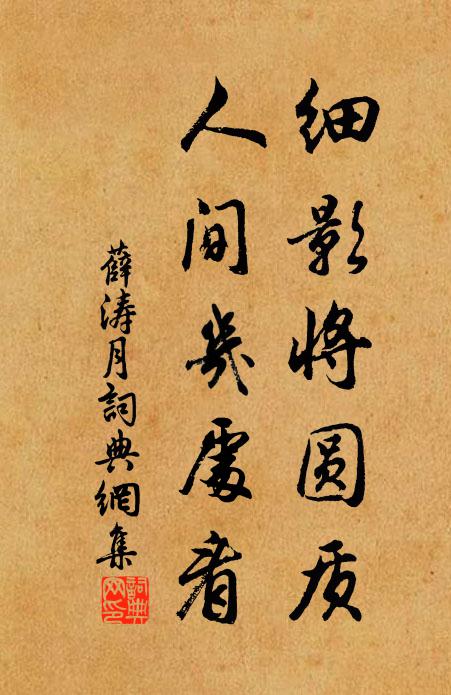 细影将圆质
人间几處看
薛涛月詞典網集
詞典网印